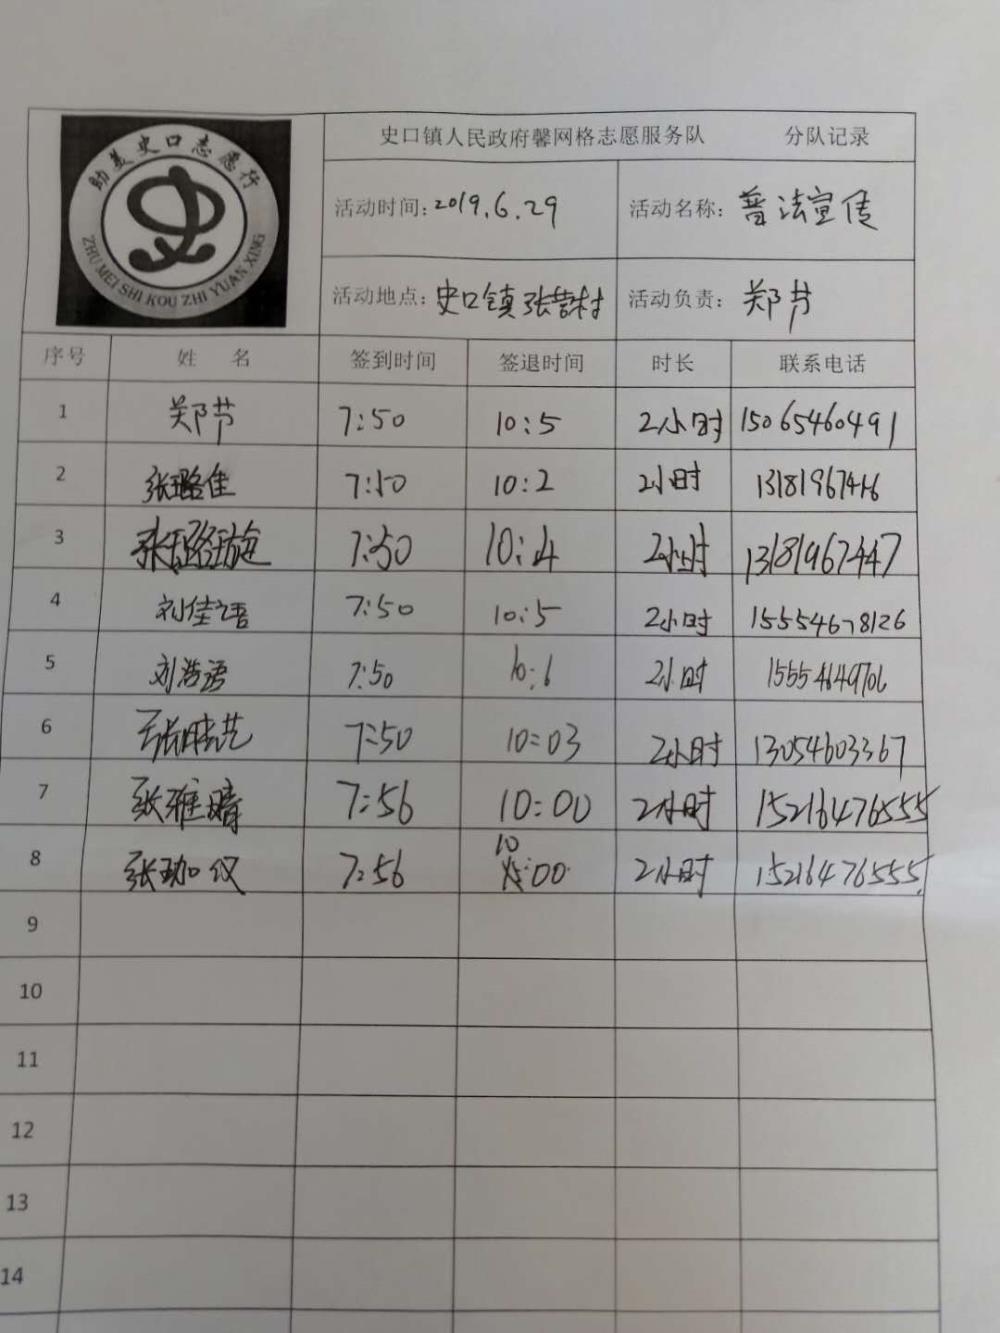 助美史口志愿行
ZHU MEI SHI KOU ZHI YUAN XING
史口镇人民政府馨网格志愿服务队 分队记录
活动时间:2019.6.29 活动名称:普法宣传
活动地点:史口镇张营村 活动负责:郑节
序号 姓 名 签到时间 签退时间 时长 联系电话
1 郑节 7:50 10:5 2小时 15065460491
2 张璐佳 7:50 10:2 2小时 13181967416
3 7:50 10:4 2小时 13181967447
4 刘佳语 7:50 10:5 2小时 15554678126
5 刘浩语 7:50 10:6 2小时 15554649706
6 7:50 10:03 2小时 13054603367
7 张雅晴 7:56 10:00 2小时 15216476555
8 张珈仪 7:56 10:00 2小时 15216476555
9
10
11
12
13
14